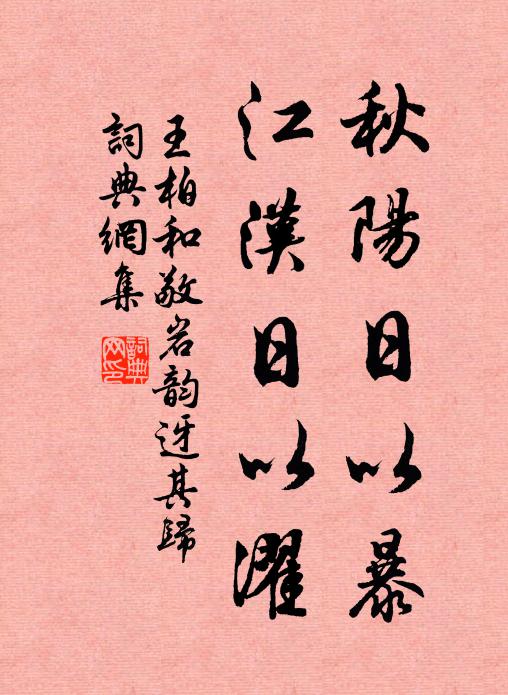 秋陽日以暴
江漢日以濯
王柏和敬岩韵迓其歸
詞典網集
詞典
网印